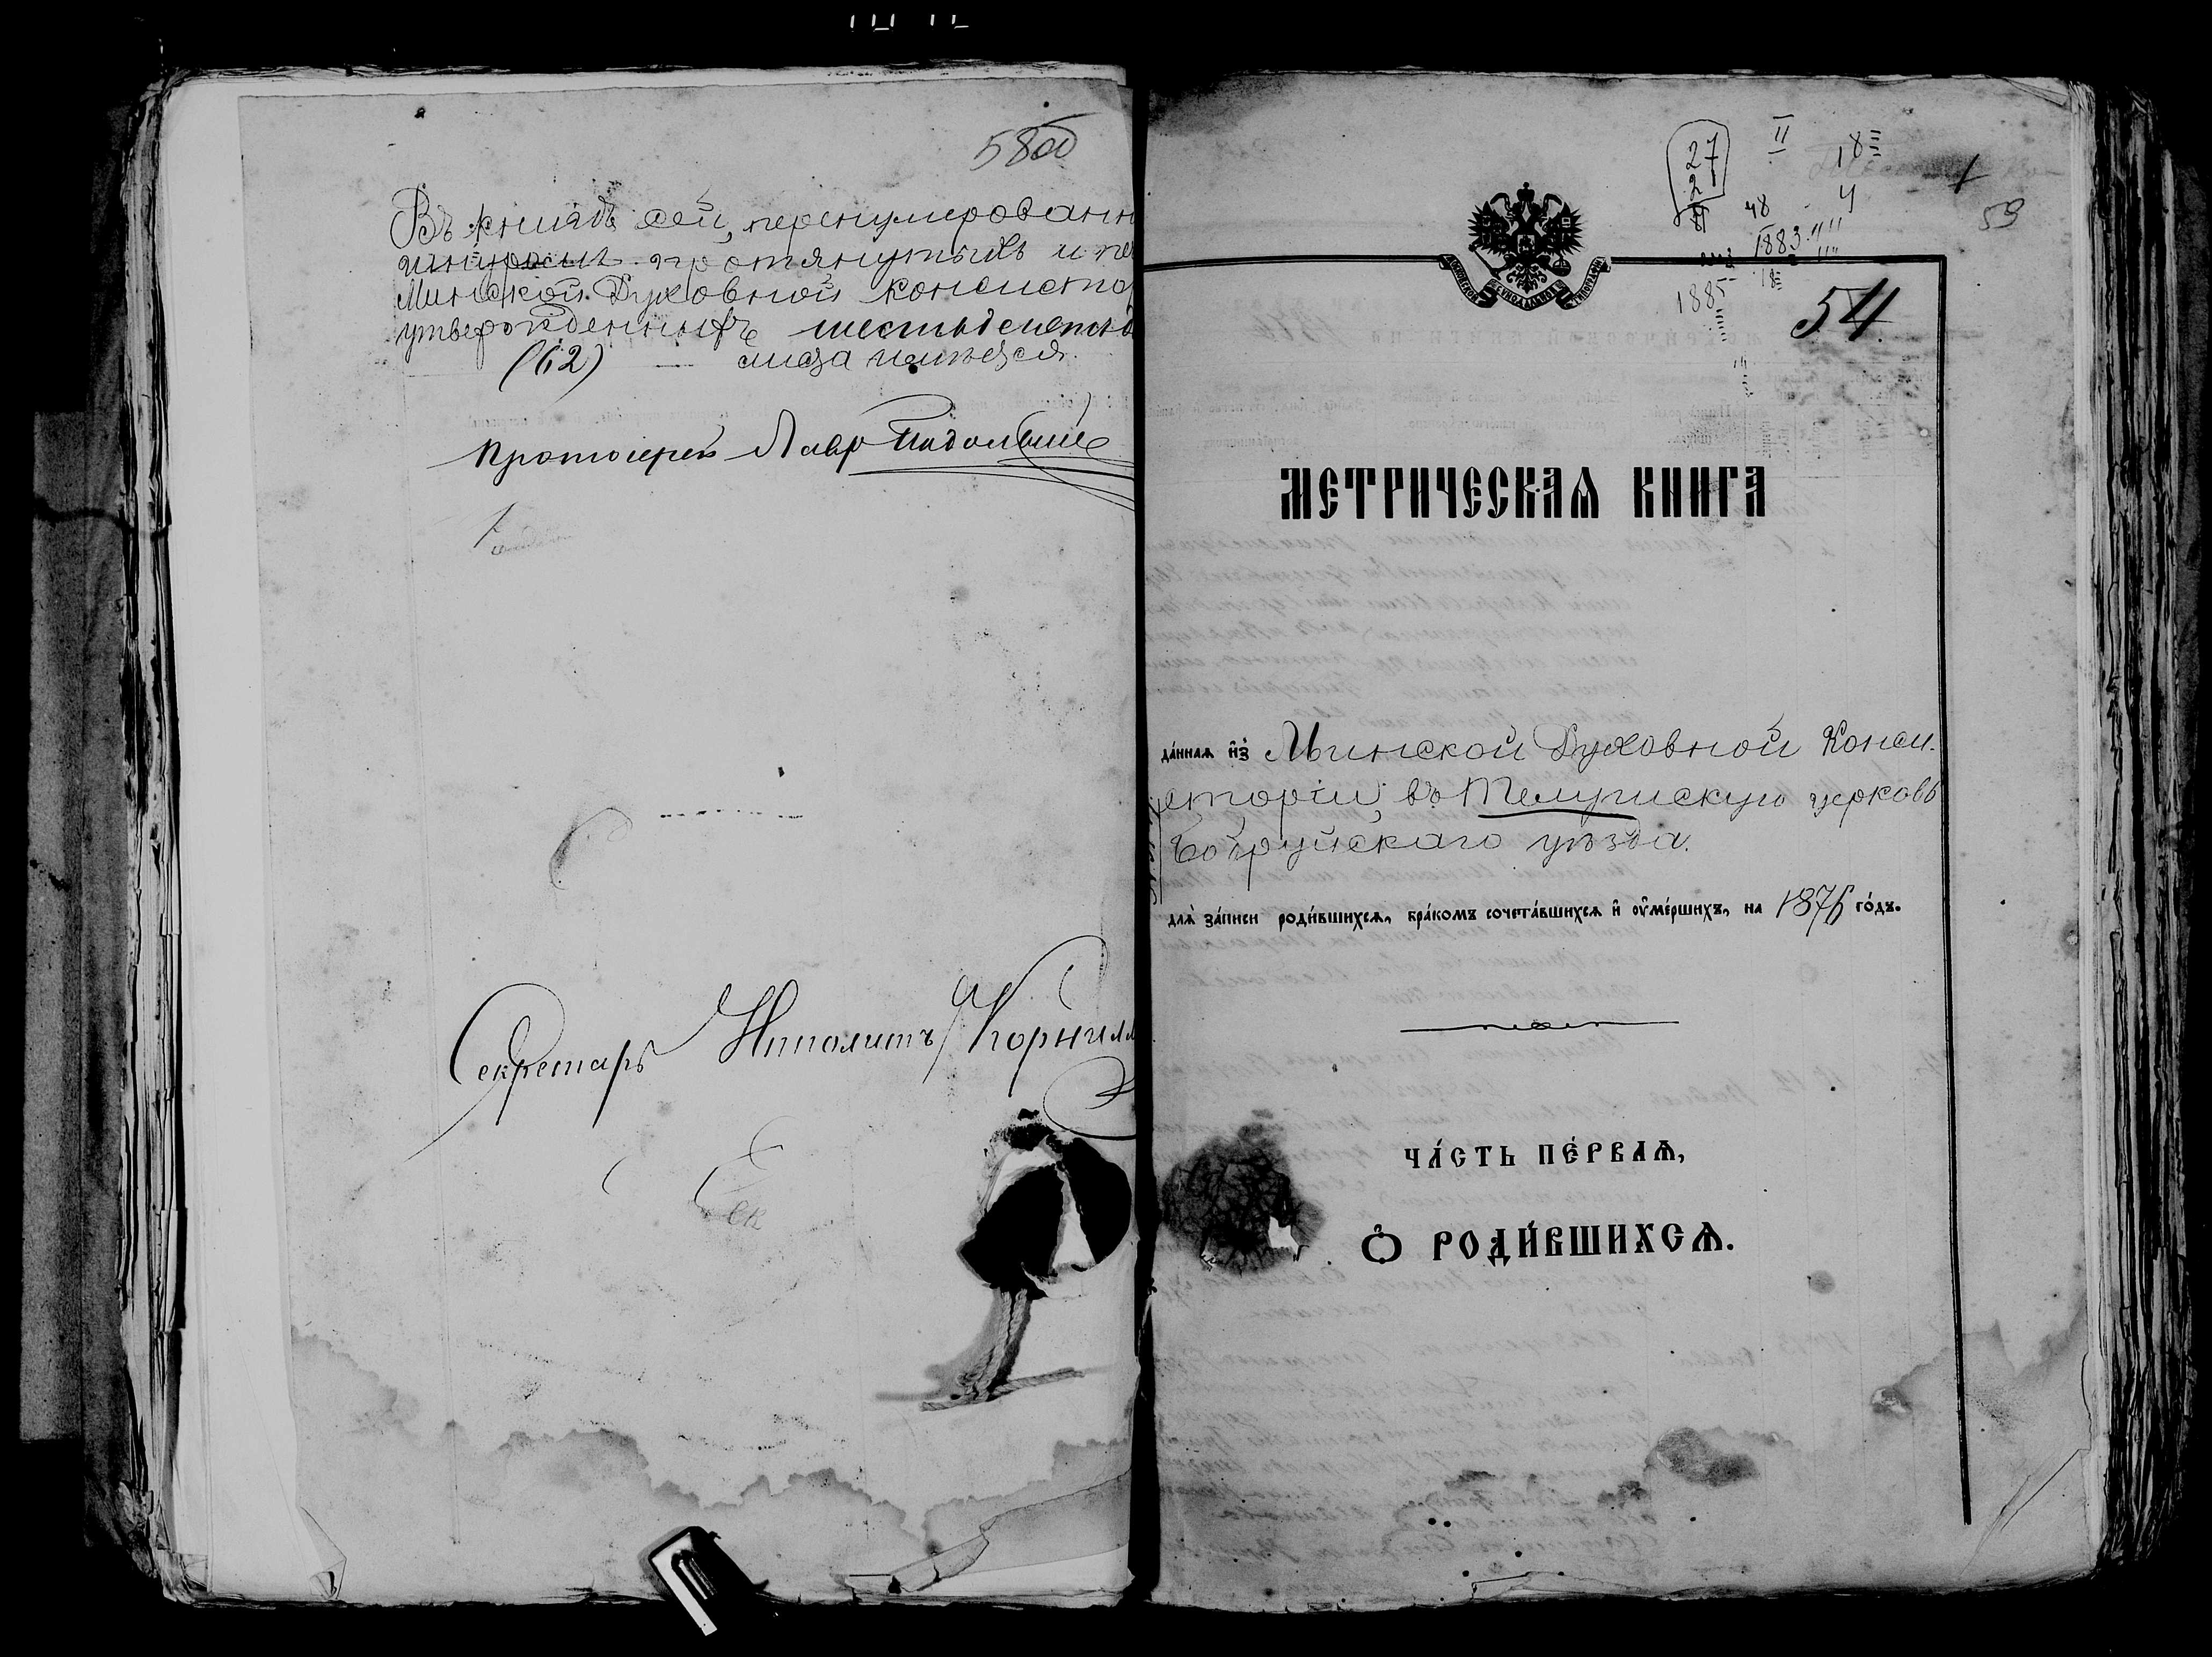 58об
Въ книгѣ сей, перенумерованн
шнуромъ протянутыхъ и пе
Минской Духовной Консисто
утвержденныхъ шестьдесятъ
(62) — листа имѣется.
Протоіерей Лавръ
Секретарь Ипполитъ Корнил
27
II
18
1
21
48
4
59
1883
1885
18
54.
МОСКОВСКОЙ СѴНОДАЛЬНОЙ ТИПОГРАФІИ
МЕТРИЧЕСКАѦ КНИГА
да́ннаѧ и҆з̾ Минской Духовной Конси-
сторіи, въ Телушскую церковь
Бобруйскаго уѣзда.
длѧ̀ за́писи роди́вшихсѧ, бра́комъ сочета́вшихсѧ и҆ ᲂу҆ме́ршихъ, на 1876 го́дъ.
ЧА́СТЬ ПЕ́РВАѦ,
Ѽ РОДИ́ВШИХСѦ.